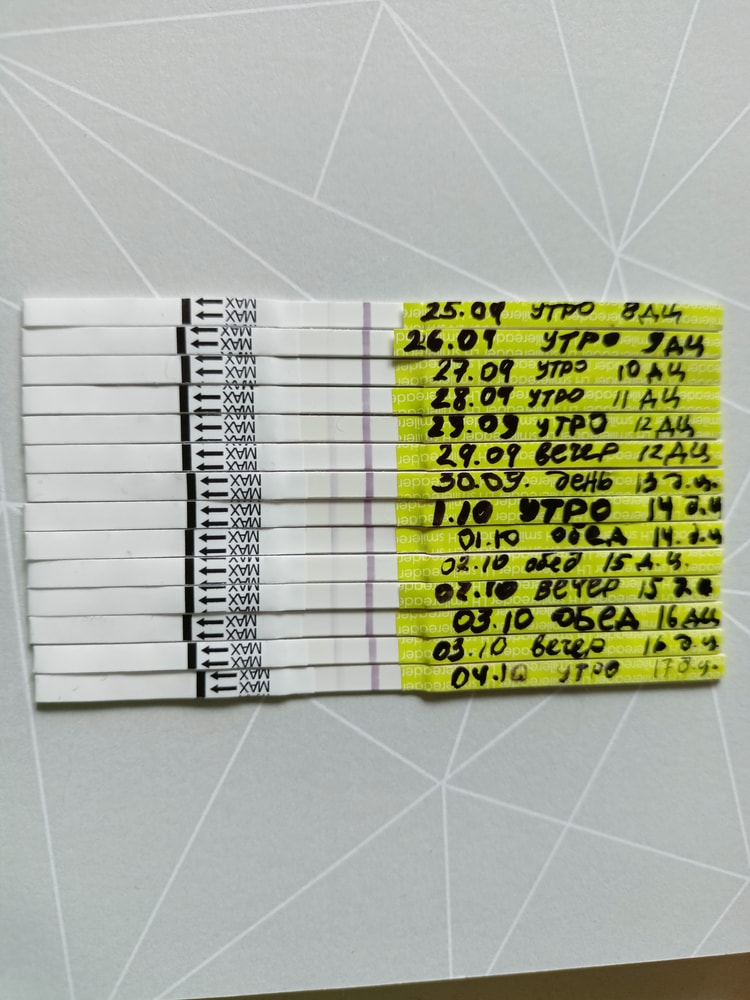 MAX 25.09 УТРО 8ДЦ
MAX 26.09 УТРО 9ДЦ
MAX 27.09 УТРО 10 ДЦ
MAX 28.09 УТРО 11 ДЦ
MAX 29.09 УТРО 12 ДЦ
MAX 29.09 ВЕЧЕР 12 ДЦ
MAX 30.09. день 13 д.ц.
MAX 1.10 УТРО 14 д.ц
MAX 01.10 обед 14. д.ц
MAX 02.10 обед 15 д.ц.
MAX 02.10 ВЕЧЕР 15 д.ц
MAX 03.10 ОБЕД 16 ДЦ
MAX 03.10 вечер 16 д.ц
MAX 04.10 УТРО 17 д.ц.